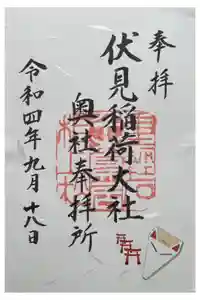 奉拝
伏見稲荷大社
奥社奉拝所
令和四年九月十八日